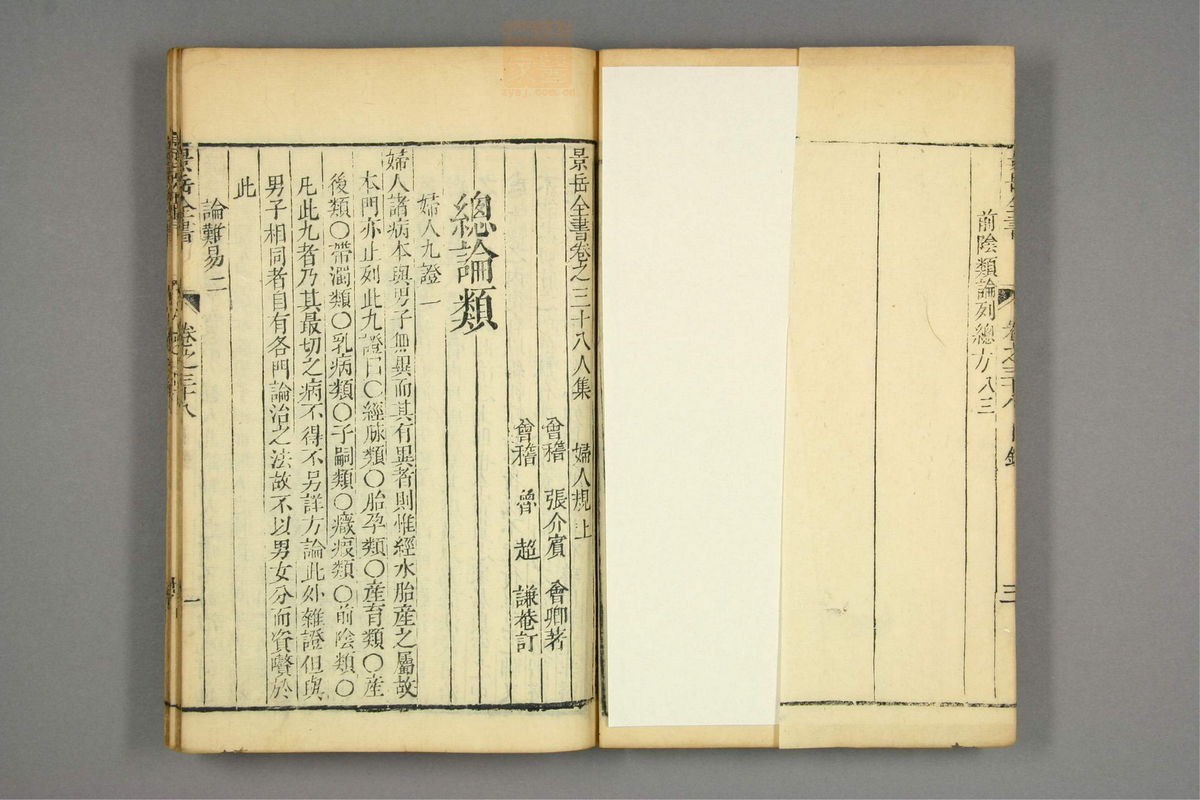 前陰類論列總方 八三
三
景岳全書卷之三十八人集 婦人規上
會稽 張介賓 會卿著
會稽 魯超 謙菴訂
總論類
婦人九證一
婦人諸病本與男子無異而其有異者則惟經水胎產之屬故
本門亦止列此九證曰○經脉類○胎孕類○產育類○產
後類○帶濁類○乳病類○子嗣類○癥瘕類○前陰類○
凡此九者乃其最切之病不得不另詳方論此外雜證但與
男子相同者自有各門論治之法故不以男女分而資贅於
此
論難易二
景岳全書 卷之三十八 一